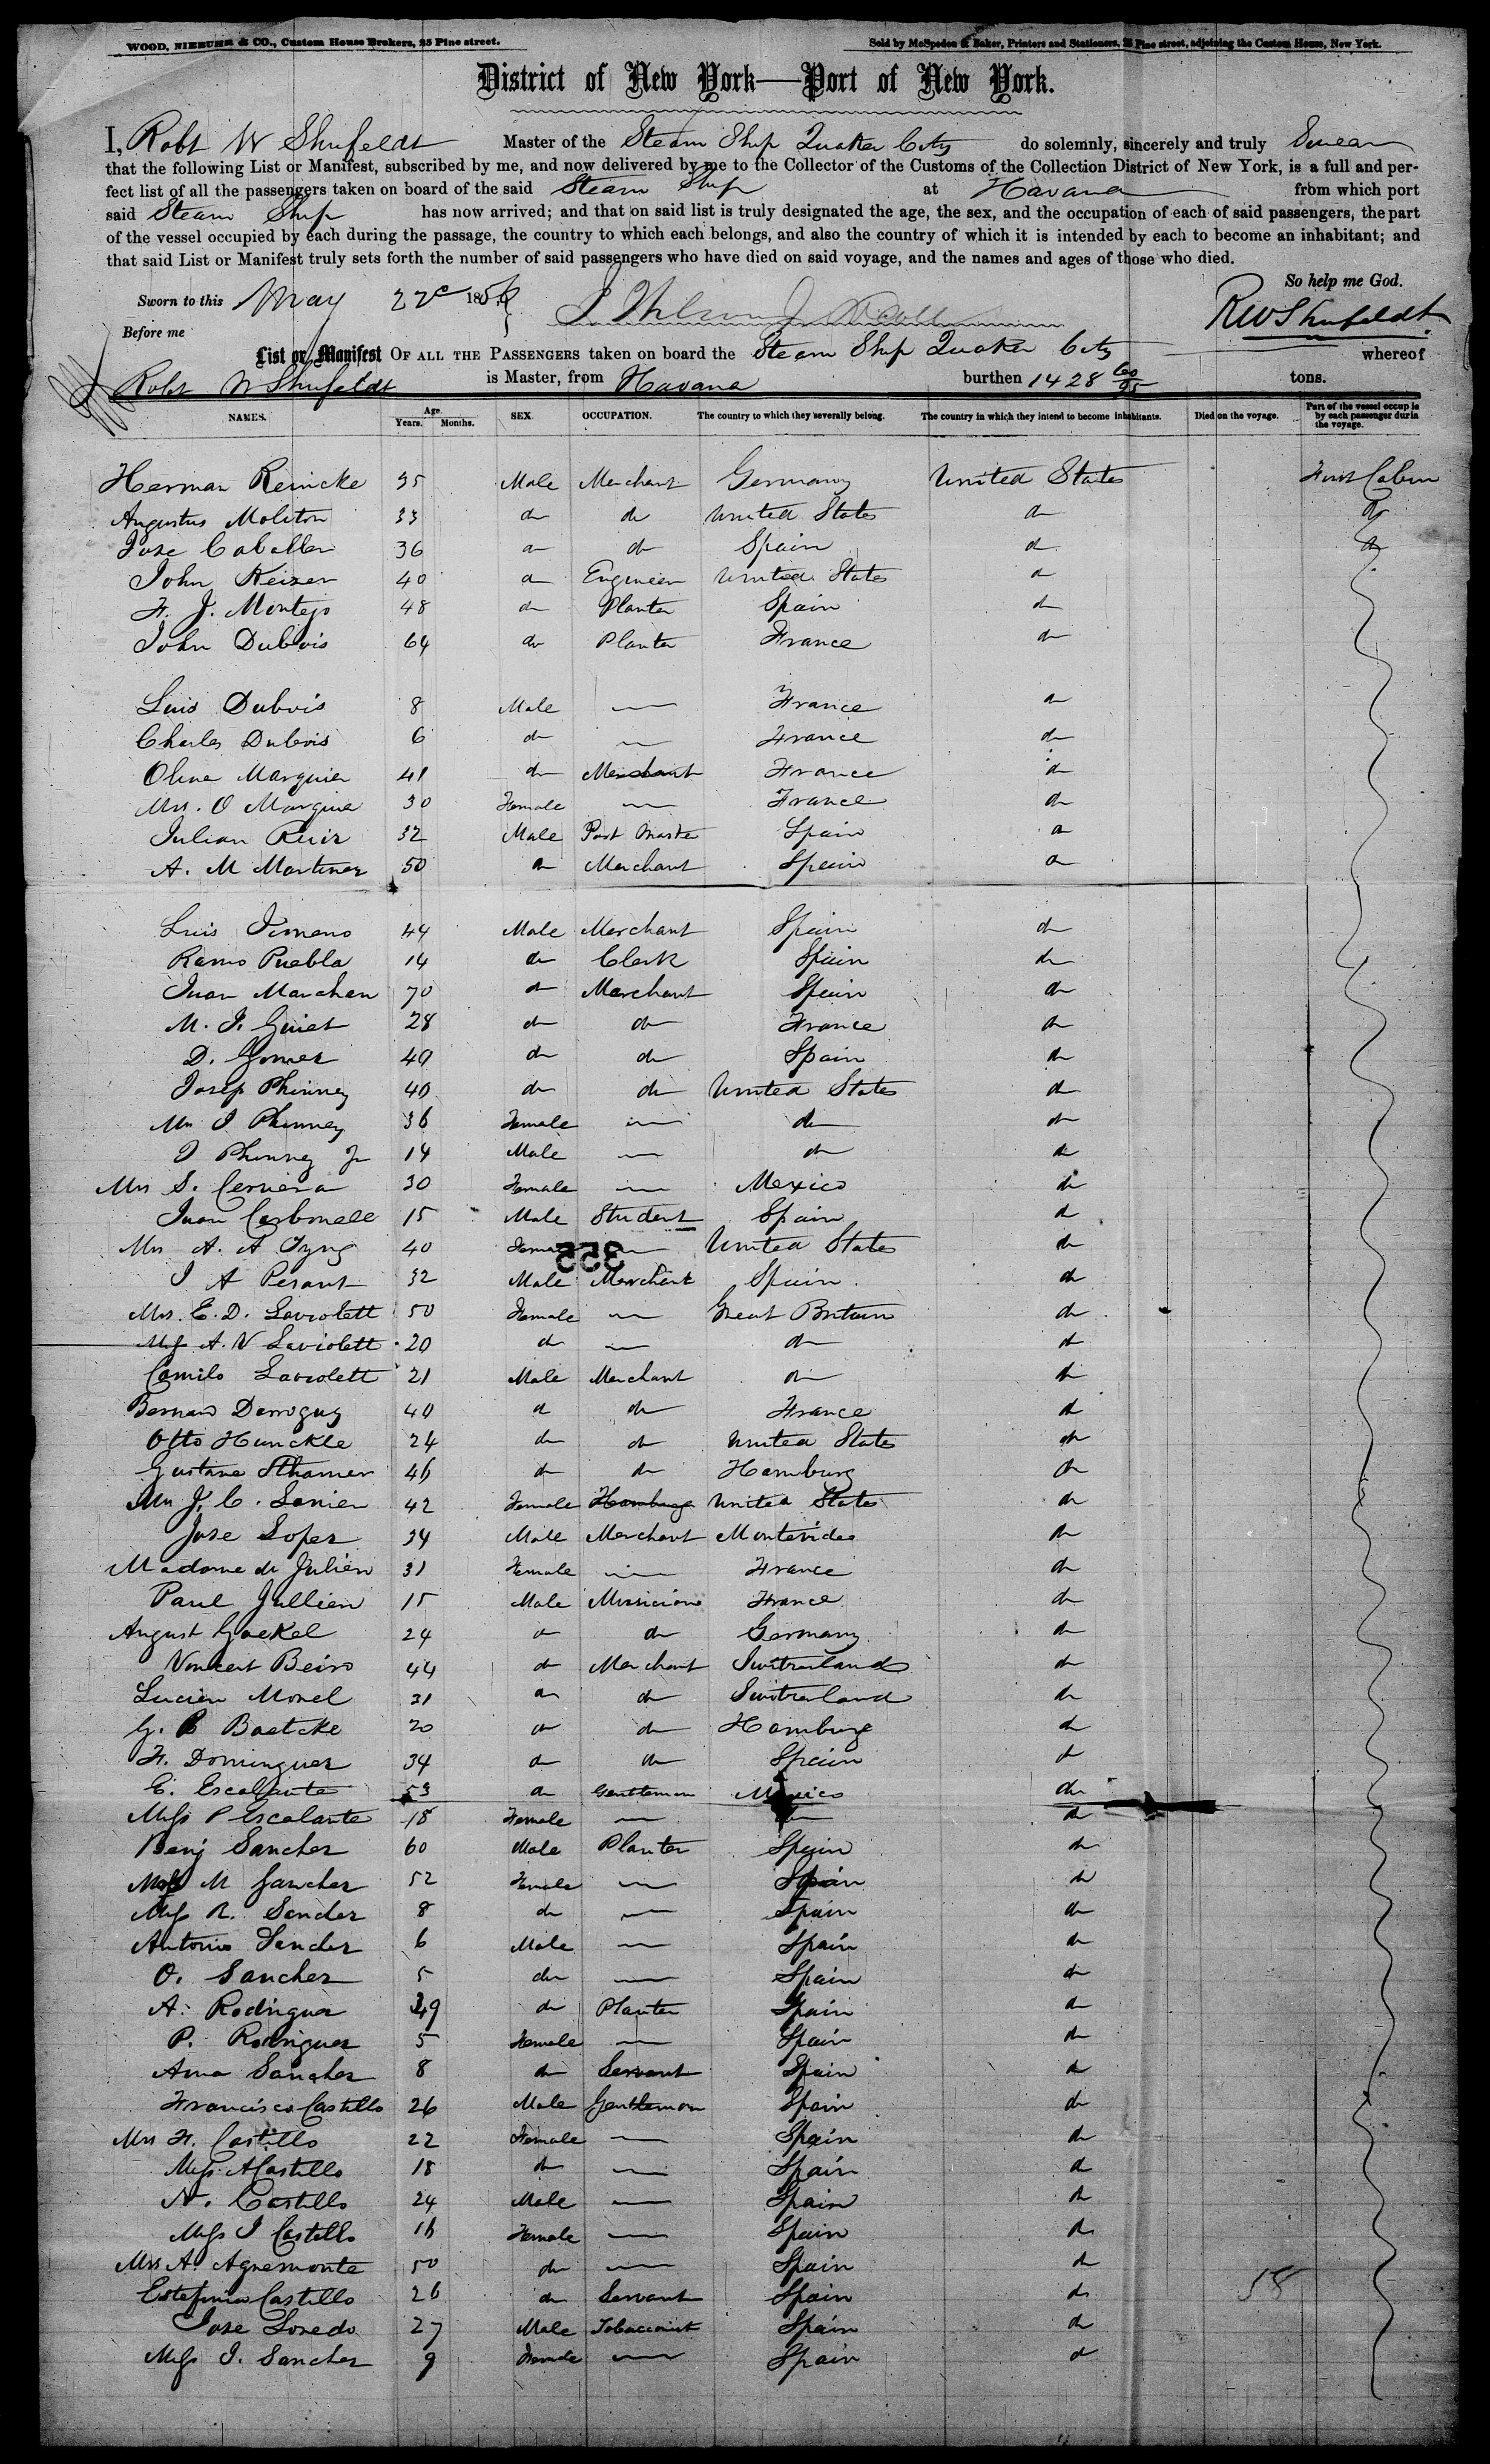 WOOD, NIEBUHR & CO., Custom House Brokers, 25 Pine street.
Sold by McSpedon & Baker, Printers and Stationers, 25 Pine street, adjoining the Custom House, New York.
District of New York—Port of New York.
I, Robt W Shufeldt Master of the Steam Ship Quaker City do solemnly, sincerely and truly Swear
that the following List or Manifest, subscribed by me, and now delivered by me to the Collector of the Customs of the Collection District of New York, is a full and per-
fect list of all the passengers taken on board of the said Steam Ship at Havana from which port
said Steam Ship has now arrived; and that on said list is truly designated the age, the sex, and the occupation of each of said passengers, the part
of the vessel occupied by each during the passage, the country to which each belongs, and also the country of which it is intended by each to become an inhabitant; and
that said List or Manifest truly sets forth the number of said passengers who have died on said voyage, and the names and ages of those who died.
So help me God.
Sworn to this May 27 1856
RW Shufeldt
Before me
List or Manifest OF ALL THE PASSENGERS taken on board the Steam Ship Quaker City whereof
Robt W Shufeldt is Master, from Havana burthen 1428 60/95 tons.
NAMES. Age. Years. Months. SEX. OCCUPATION. The country to which they severally belong. The country in which they intend to become inhabitants. Died on the voyage. Part of the vessel occup ie by each passenger durin the voyage.
Herman Reincke 35 Male Merchant Germany United States First Cabin
Augustus Moliton 33 do do United States do do
Jose Caballer 36 do do Spain do do
John Keizer 40 do Engineer United States do
F. J. Montejo 48 do Planter Spain do
John Dubois 64 do Planter France do
Luis Dubois 8 Male — France do
Charles Dubois 6 do — France do
Oliva Marquier 41 do Merchant France do
Mrs. O Marquie 30 Female — France do
Julian Ruiz 32 Male Post Master Spain do
A. M Martinez 50 do Merchant Spain do
Luis Jimeno 44 Male Merchant Spain do
Ramo Puebla 14 do Clerk Spain do
Juan Marchan 70 do Merchant Spain do
M. J. Guiet 28 do do France do
D. Gomez 49 do do Spain do
Josep Phinney 40 do do United States do
Mrs J Phinney 36 Female — do do
J Phinney Jr 14 Male — do do
Mrs S. Cerviera 30 Female — Mexico do
Juan Carbonell 15 Male Student Spain do
Mrs A. A Tyng 40 Female — United States do
355
J A Perant 32 Male Merchant Spain do
Mrs. E. D. Laviolett 50 Female — Great Britain do
Miss A. V Laviolett 20 do — do do
Camilo Laviolett 21 Male Merchant do do
Bernard Derroguy 40 do do France do
Otto Hunckle 24 do do United States do
Gustave Sthamer 46 do do Hamburg do
Mrs J. C. Lanier 42 Female Hamburg United States do
Jose Lopez 34 Male Merchant Montevideo do
Madame de Julien 31 Female — France do
Paul Jullien 15 Male Musician France do
August Gockel 24 do do Germany do
Vincent Beiro 44 do Merchant Switzerland do
Lucien Morel 31 do do Switzerland do
G. B Baetcke 20 do do Hamburg do
F. Dominguez 34 do do Spain do
E. Escalante 53 do Gentleman Mexico do
Miss P Escalante 18 Female — do do
Benj Sanchez 60 Male Planter Spain do
M Sanchez 52 Female — Spain do
Miss R. Sanchez 8 do — Spain do
Antonio Sanchez 6 Male — Spain do
O. Sanchez 5 do — Spain do
A. Rodriguez 49 do Planter Spain do
P. Rodriguez 5 Female — Spain do
Ana Sanchez 8 do Servant Spain do
Francisco Castillo 26 Male Gentleman Spain do
Mrs F. Castillo 22 Female — Spain do
Miss A Castillo 18 do — Spain do
N. Castillo 24 Male — Spain do
Miss J Castillo 16 Female — Spain do
Mrs A. Agremonte 50 do — Spain do
Estefania Castillo 26 do Servant Spain do 58
Jose Loredo 27 Male Tobacconist Spain do
Miss J. Sanchez 9 Female — Spain do